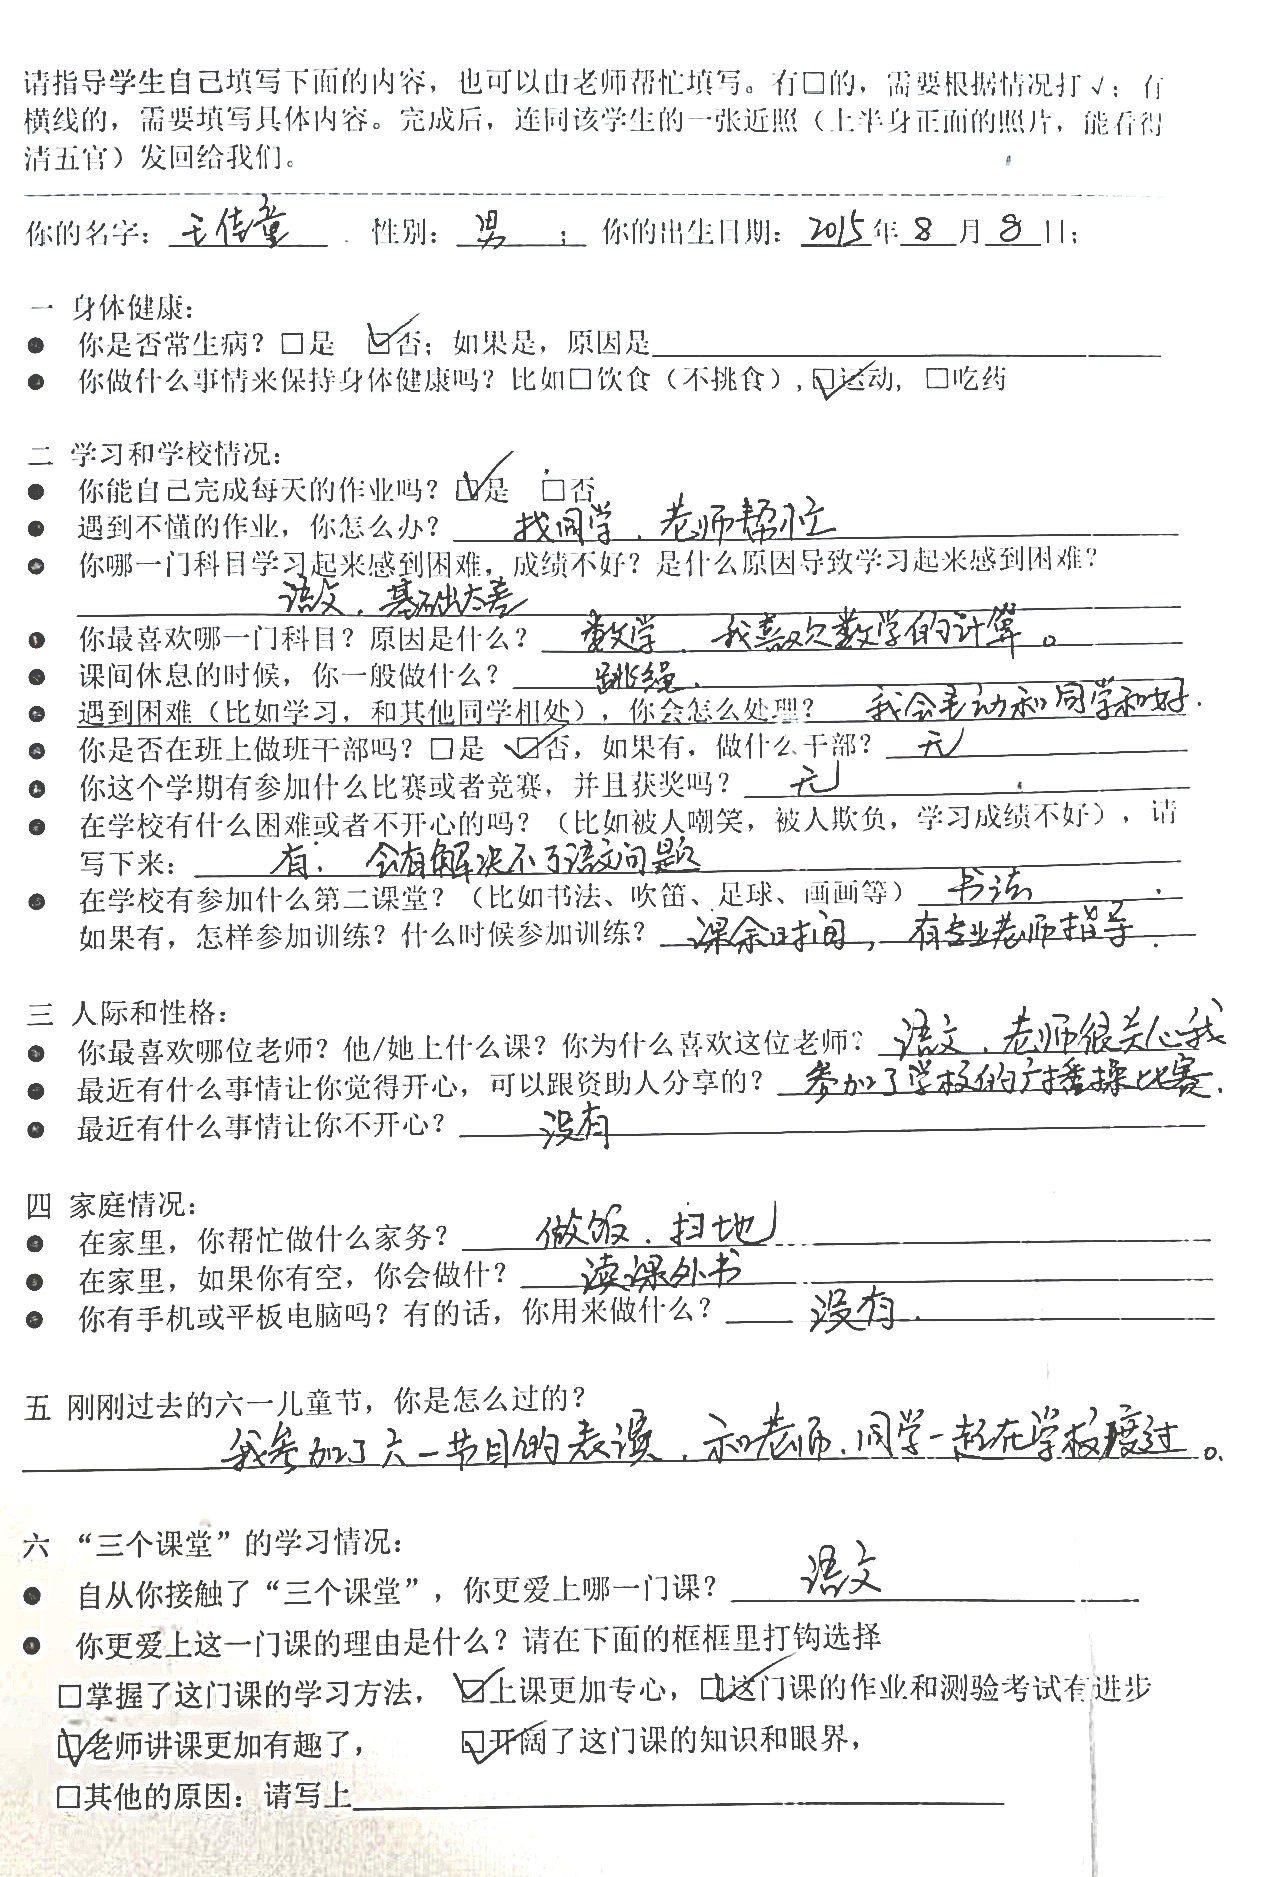 请指导学生自己填写下面的内容，也可以由老师帮忙填写。有□的，需要根据情况打√；有
横线的，需要填写具体内容。完成后，连同该学生的一张近照（上半身正面的照片，能看得
清五官）发回给我们。
你的名字：王佳童 . 性别：男；你的出生日期：2015年8月8日；
一 身体健康：
● 你是否常生病？□是 ☑否；如果是，原因是
● 你做什么事情来保持身体健康吗？比如□饮食（不挑食），☑运动，□吃药
二 学习和学校情况：
● 你能自己完成每天的作业吗？☑是 □否
● 遇到不懂的作业，你怎么办？找同学、老师帮忙
● 你哪一门科目学习起来感到困难，成绩不好？是什么原因导致学习起来感到困难？
语文，基础太差
● 你最喜欢哪一门科目？原因是什么？数学，我喜欢数学的计算。
● 课间休息的时候，你一般做什么？跳绳.
● 遇到困难（比如学习，和其他同学相处），你会怎么处理？我会主动和同学和好.
● 你是否在班上做班干部吗？□是 ☑否，如果有，做什么干部？无
● 你这个学期有参加什么比赛或者竞赛，并且获奖吗？无
● 在学校有什么困难或者不开心的吗？（比如被人嘲笑，被人欺负，学习成绩不好），请
写下来：有. 会有解决不了语文问题
● 在学校有参加什么第二课堂？（比如书法、吹笛、足球、画画等）书法
如果有，怎样参加训练？什么时候参加训练？课余时间，有专业老师指导.
三 人际和性格：
● 你最喜欢哪位老师？他/她上什么课？你为什么喜欢这位老师？语文，老师很关心我
● 最近有什么事情让你觉得开心，可以跟资助人分享的？参加了学校的广播操比赛.
● 最近有什么事情让你不开心？没有
四 家庭情况：
● 在家里，你帮忙做什么家务？做饭、扫地
● 在家里，如果你有空，你会做什？读课外书
● 你有手机或平板电脑吗？有的话，你用来做什么？没有.
五 刚刚过去的六一儿童节，你是怎么过的？
我参加了六一节目的表演，和老师、同学一起在学校度过。
六 “三个课堂”的学习情况：
● 自从你接触了“三个课堂”，你更爱上哪一门课？语文
● 你更爱上这一门课的理由是什么？请在下面的框框里打钩选择
□掌握了这门课的学习方法， ☑上课更加专心，☑这门课的作业和测验考试有进步
☑老师讲课更加有趣了， ☑开阔了这门课的知识和眼界，
□其他的原因：请写上